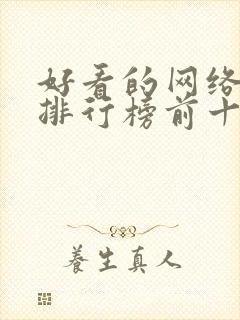 好看的网络
排行榜前十
養生真人